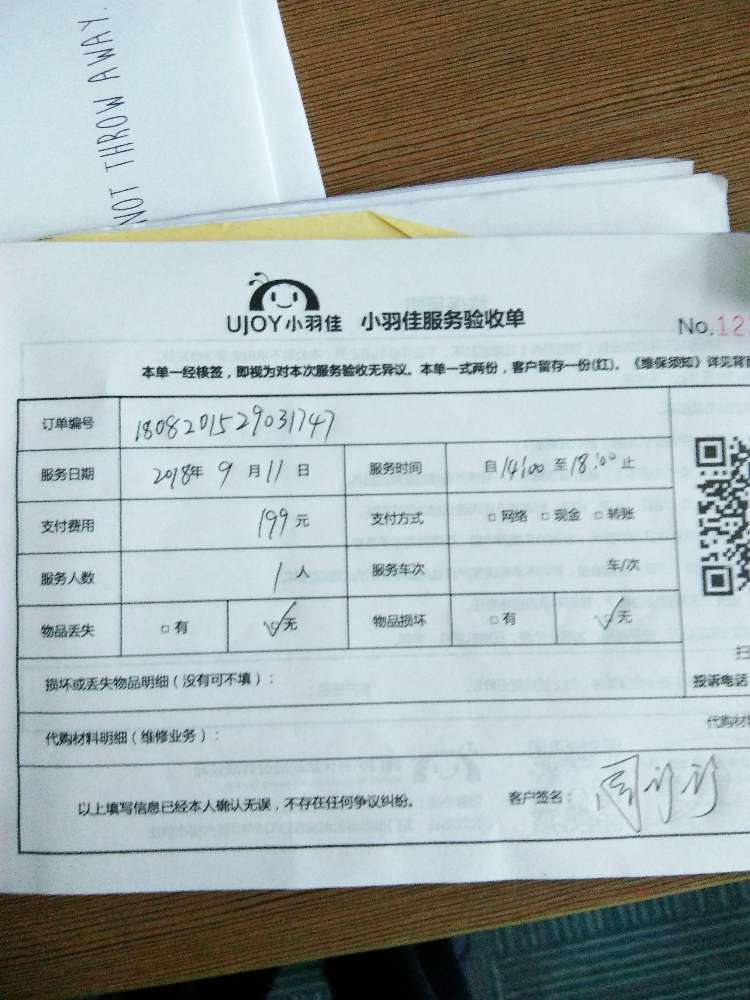 NOT THROW AWAY.
UJOY小羽佳 小羽佳服务验收单
No.12
本单一经核签，即视为对本次服务验收无异议。本单一式两份，客户留存一份(红)。《维保须知》详见背
订单编号 1808201529031747
服务日期 2018年 9 月 11 日 服务时间 自 14:00 至 18:00 止
支付费用 199 元 支付方式 □ 网络 □ 现金 □ 转账
服务人数 1 人 服务车次 车/次
物品丢失 □ 有 ☑ 无 物品损坏 □ 有 ☑ 无
损坏或丢失物品明细（没有可不填）：
扫
投诉电话
代购材料明细（维修业务）：
代购材
以上填写信息已经本人确认无误，不存在任何争议纠纷。 客户签名：